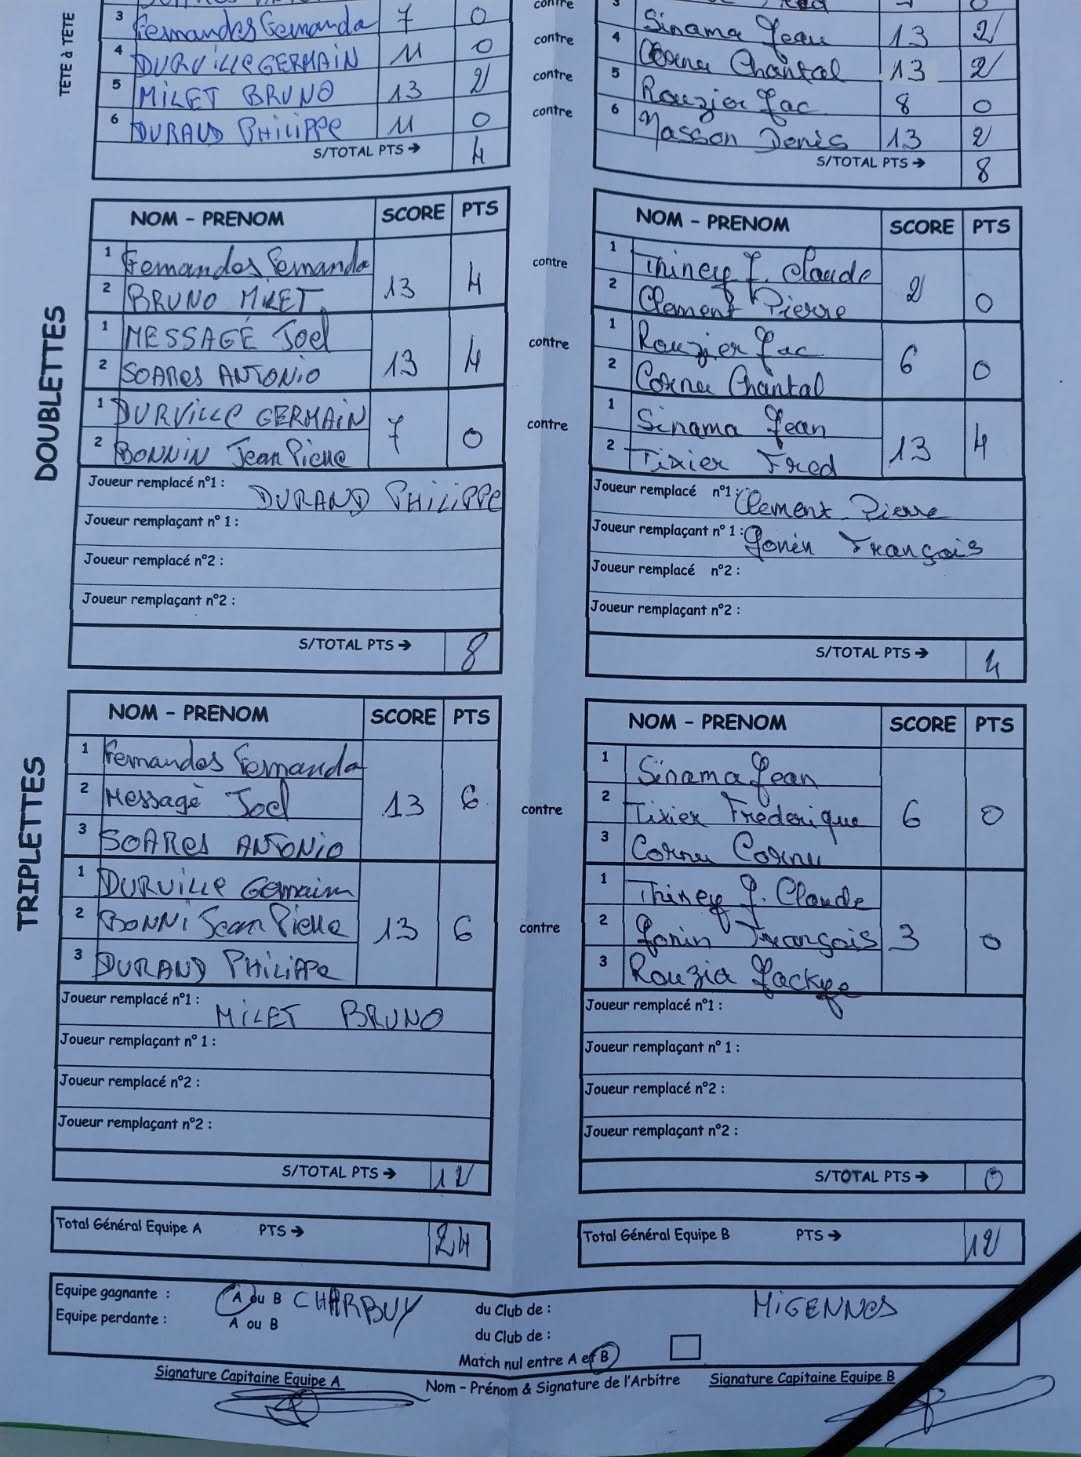 TETE à TETE
3 Fernandes Fernanda 7 0 contre 3 Sinama Jean 13 2
4 DURVILLE GERMAIN 11 0 contre 4 Cornu Chantal 13 2
5 MILET BRUNO 13 2 contre 5 Rouzier Jac 8 0
6 DURAND PHILIPPE 11 0 contre 6 Masson Denis 13 2
S/TOTAL PTS → 4 S/TOTAL PTS → 8
DOUBLETTES
NOM - PRENOM SCORE PTS NOM - PRENOM SCORE PTS
1 Fernandes Fernanda 13 4 contre 1 Thiney J. Claude 2 0
2 BRUNO MILET 2 Clement Pierre
1 MESSAGE Joel 13 4 contre 1 Rouzier Jac 6 0
2 SOARES ANTONIO 2 Cornu Chantal
1 DURVILLE GERMAIN 7 0 contre 1 Sinama Jean 13 4
2 BONNIN Jean Pierre 2 Tixier Fred
Joueur remplacé n°1 : DURAND PHILIPPE Joueur remplacé n°1 : Clement Pierre
Joueur remplaçant n° 1 : Joueur remplaçant n° 1 : Gonin François
Joueur remplacé n°2 : Joueur remplacé n°2 :
Joueur remplaçant n°2 : Joueur remplaçant n°2 :
S/TOTAL PTS → 8 S/TOTAL PTS → 4
TRIPLETTES
NOM - PRENOM SCORE PTS NOM - PRENOM SCORE PTS
1 Fernandes Fernanda 1 Sinama Jean
2 Messagè Joel 13 6 contre 2 Tixier Frederique 6 0
3 SOARES ANTONIO 3 Cornu Cornu
1 DURVILLE Germain 1 Thiney J. Claude
2 BONNI Jean Pierre 13 6 contre 2 Gonin François 3 0
3 DURAND PHILIPPE 3 Rouzier Jackye
Joueur remplacé n°1 : MILET BRUNO Joueur remplacé n°1 :
Joueur remplaçant n° 1 : Joueur remplaçant n° 1 :
Joueur remplacé n°2 : Joueur remplacé n°2 :
Joueur remplaçant n°2 : Joueur remplaçant n°2 :
S/TOTAL PTS → 12 S/TOTAL PTS → 0
Total Général Equipe A PTS → 24 Total Général Equipe B PTS → 12
Equipe gagnante : A ou B CHARBUY du Club de : MIGENNES
Equipe perdante : A ou B du Club de :
Match nul entre A et B
Signature Capitaine Equipe A Nom - Prénom & Signature de l'Arbitre Signature Capitaine Equipe B